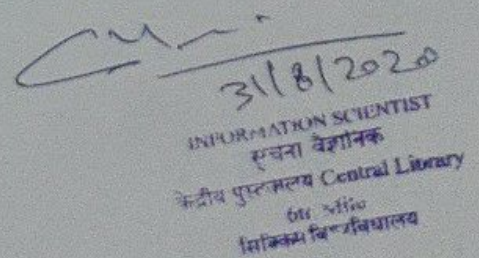 31/8/2020
INFORMATION SCIENTIST
सूचना वैज्ञानिक
केन्द्रीय पुस्तकालय Central Library
सिक्किम विश्वविद्यालय